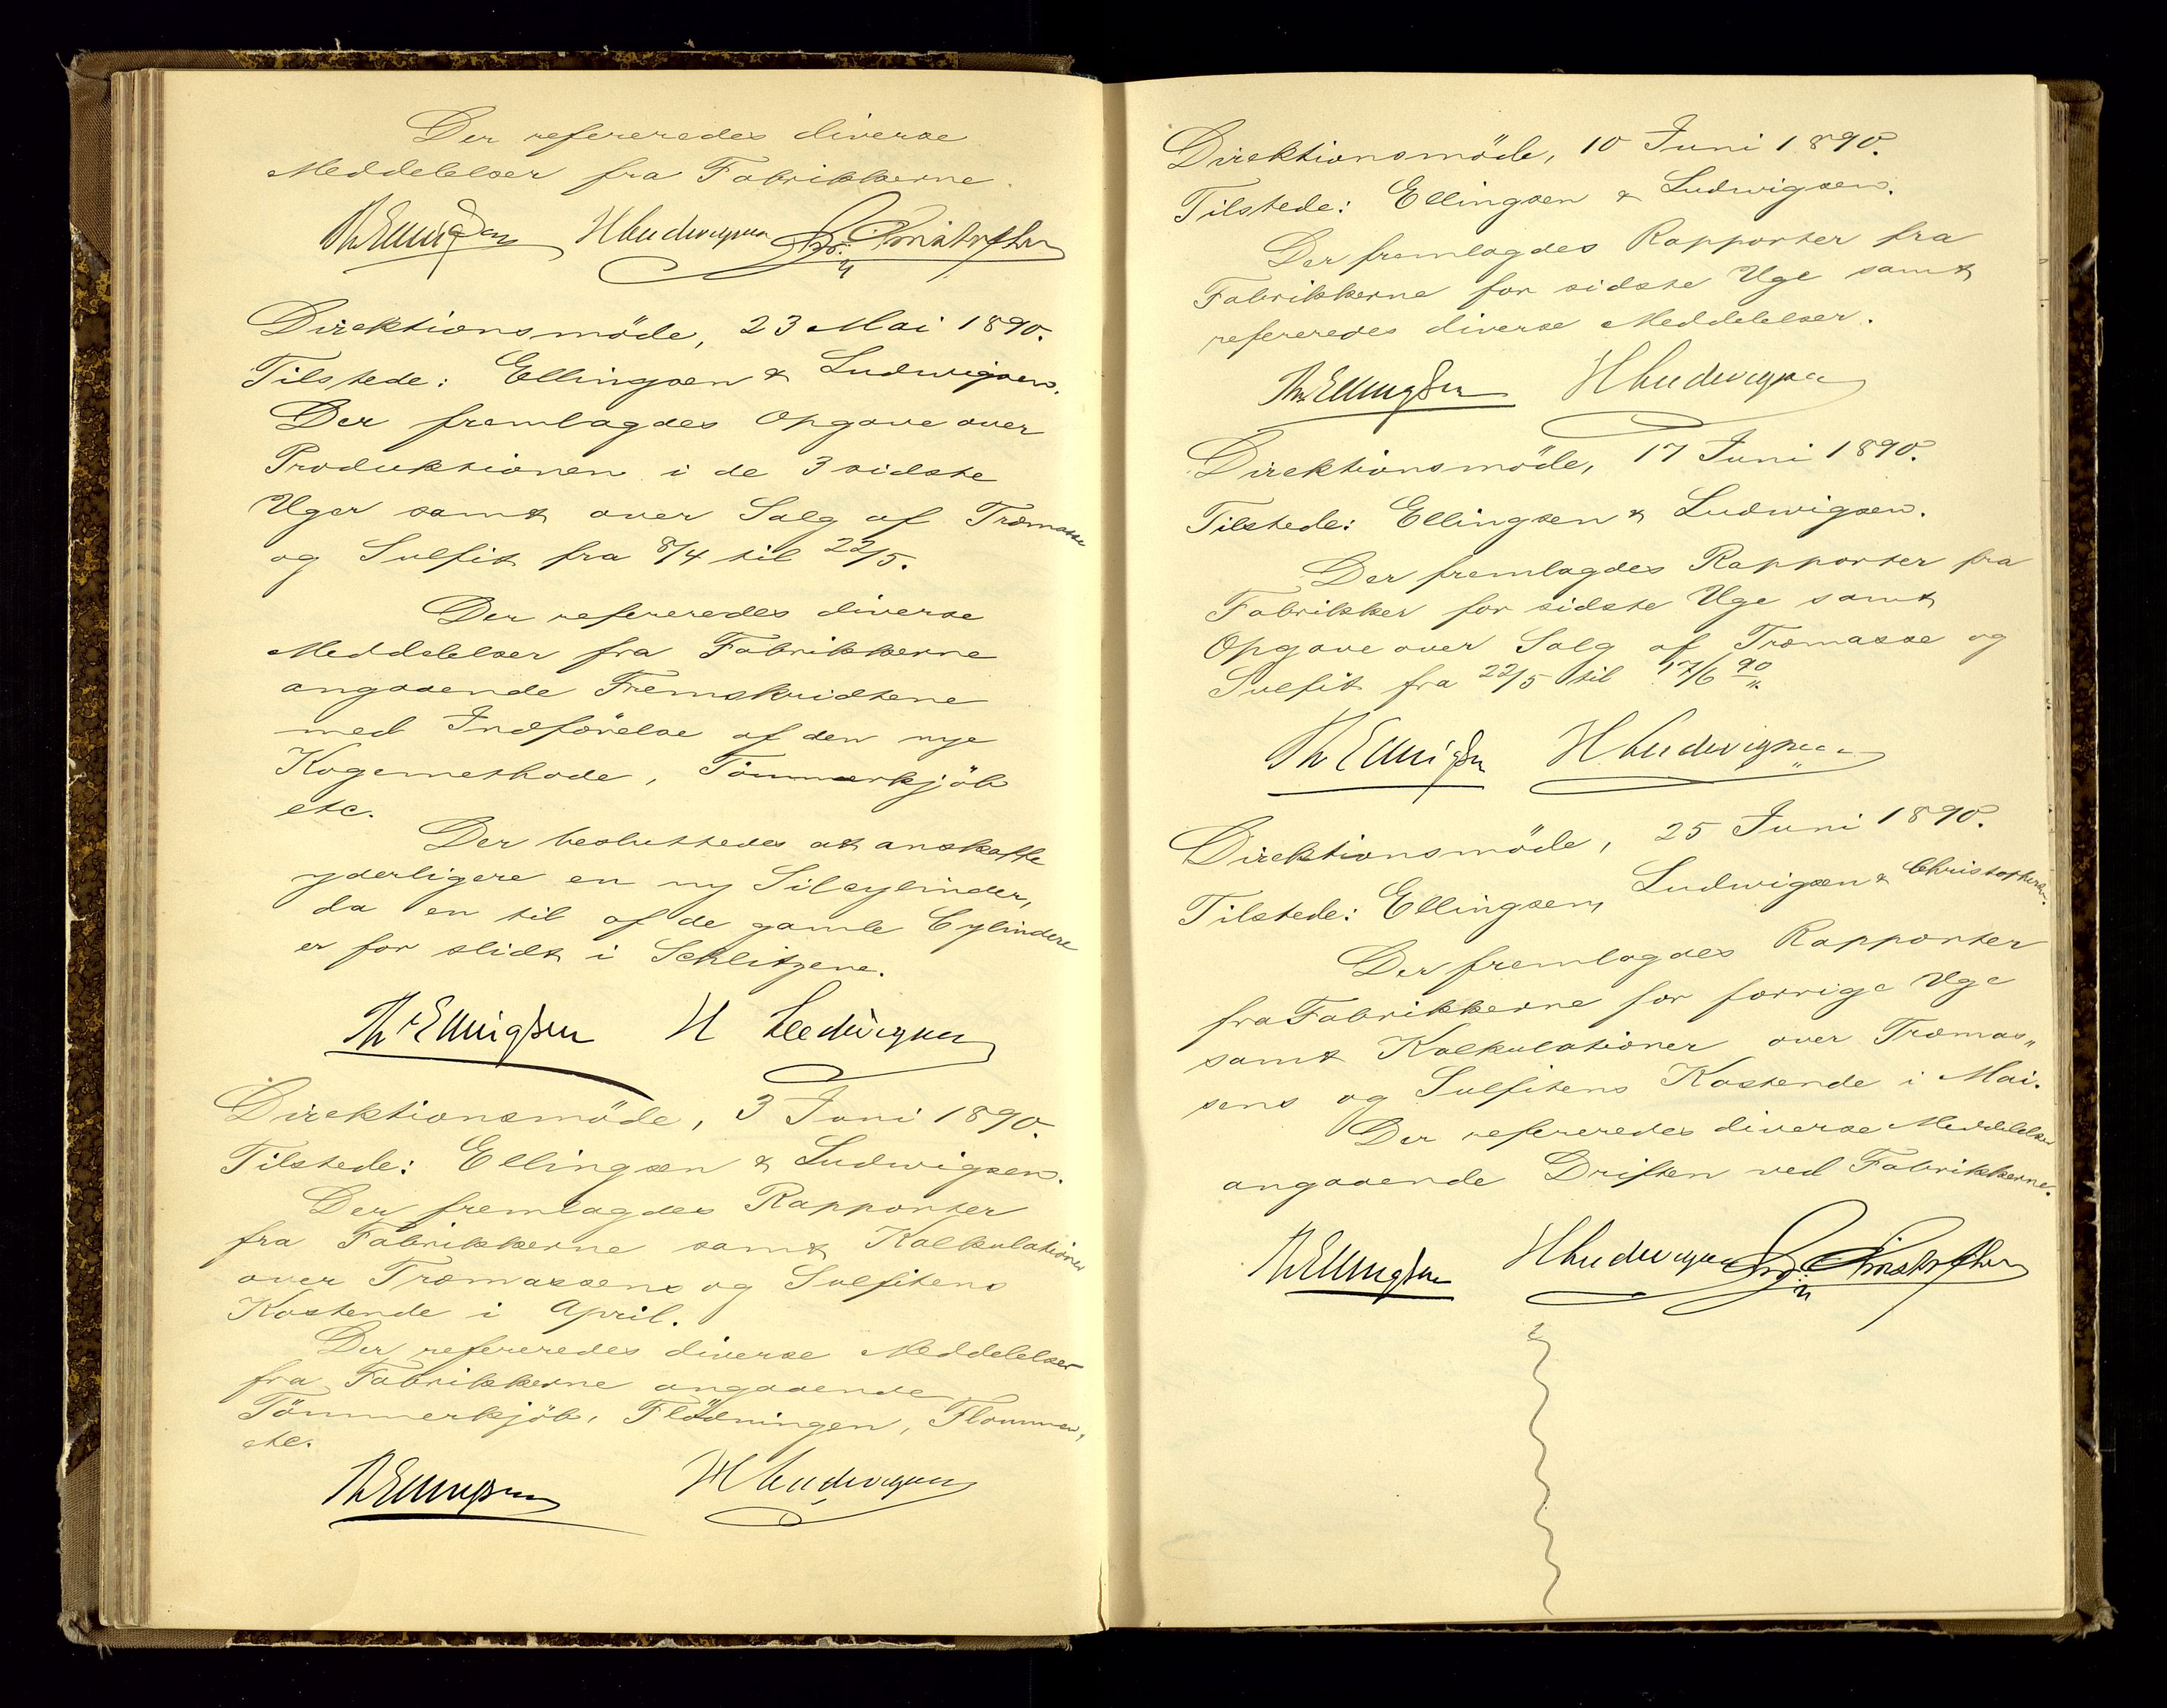 Der refereredes diverse
Meddelelser fra Fabrikkerne.
Th Ellingsen H Ludwigsen Chr. Christophersen
Direktionsmöde, 23 Mai 1890.
Tilstede: Ellingsen & Ludwigsen.
Der fremlagdes Opgave over
Produktionen i de 3 sidste
Uger samt over Salg af Træmasse
og Sulfit fra 8/4 til 22/5.
Der refereredes diverse
Meddelelser fra Fabrikkerne
angaaende Fremskridtene
med Indförelse af den nye
Kogemethode, Tömmerkjöb
etc.
Der besluttedes at anskaffe
yderligere en ny Silcylinder,
da en til af de gamle Cylindere
er for slidt i Schlitzene.
Th Ellingsen H Ludwigsen
Direktionsmöde, 3 Juni 1890.
Tilstede: Ellingsen & Ludwigsen.
Der fremlagdes Rapporter
fra Fabrikkerne samt Kalkulationer
over Træmassens og Sulfitens
Kostende i April.
Der refereredes diverse Meddelelser
fra Fabrikkerne angaaende
Tömmerkjöb, Flödningen, Flommen,
etc.
Th Ellingsen H Ludwigsen
Direktionsmöde, 10 Juni 1890.
Tilstede: Ellingsen & Ludwigsen.
Der fremlagdes Rapporter fra
Fabrikkerne for sidste Uge samt
refereredes diverse Meddelelser.
Th Ellingsen H Ludwigsen
Direktionsmöde, 17 Juni 1890.
Tilstede: Ellingsen & Ludwigsen.
Der fremlagdes Rapporter fra
Fabrikker for sidste Uge samt
Opgave over Salg af Træmasse og
Sulfit fra 22/5 til 17/6 90
Th Ellingsen H Ludwigsen
Direktionsmöde, 25 Juni 1890.
Tilstede: Ellingsen, Ludwigsen & Christophersen.
Der fremlagdes Rapporter
fra Fabrikkerne for forrige Uge
samt Kalkulationer over Træmas„
sens og Sulfitens Kostende i Mai.
Der refereredes diverse Meddelelser
angaaende Driften ved Fabrikkerne.
Th Ellingsen H Ludwigsen Chr. Christophersen